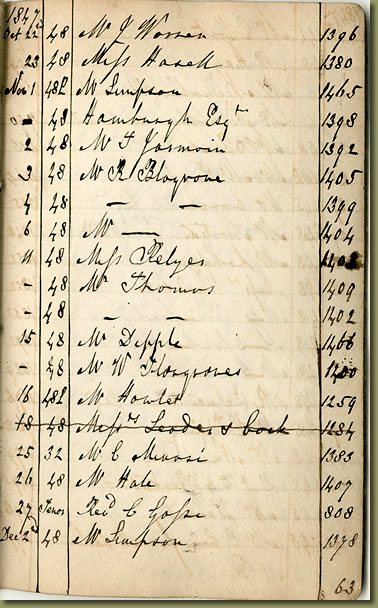 1847
Oct 22 48 Mr J Warren 1396
23 48 Miss Hasell 1380
Nov 1 48 Mr Simpson 1465
- 48 Hamburgh Esqr 1398
2 48 Mr T Jarmain 1392
3 48 Mr R Blagrove 1405
4 48 — — 1399
6 48 Mr — 1404
11 48 Miss Pelyer
- 48 Mr Thomas 1409
- 48 — — 1402
15 48 Mr Dipple 1466
- 48 Mr W 1400
16 48 Mr Howlet 1259
18 48 Messrs Leader & Cock 1284
25 32 Mr C 1383
26 48 Mr Hale 1407
27 Tenor Revd C 808
Dec 2d 48 Mr Simpson 1378
63